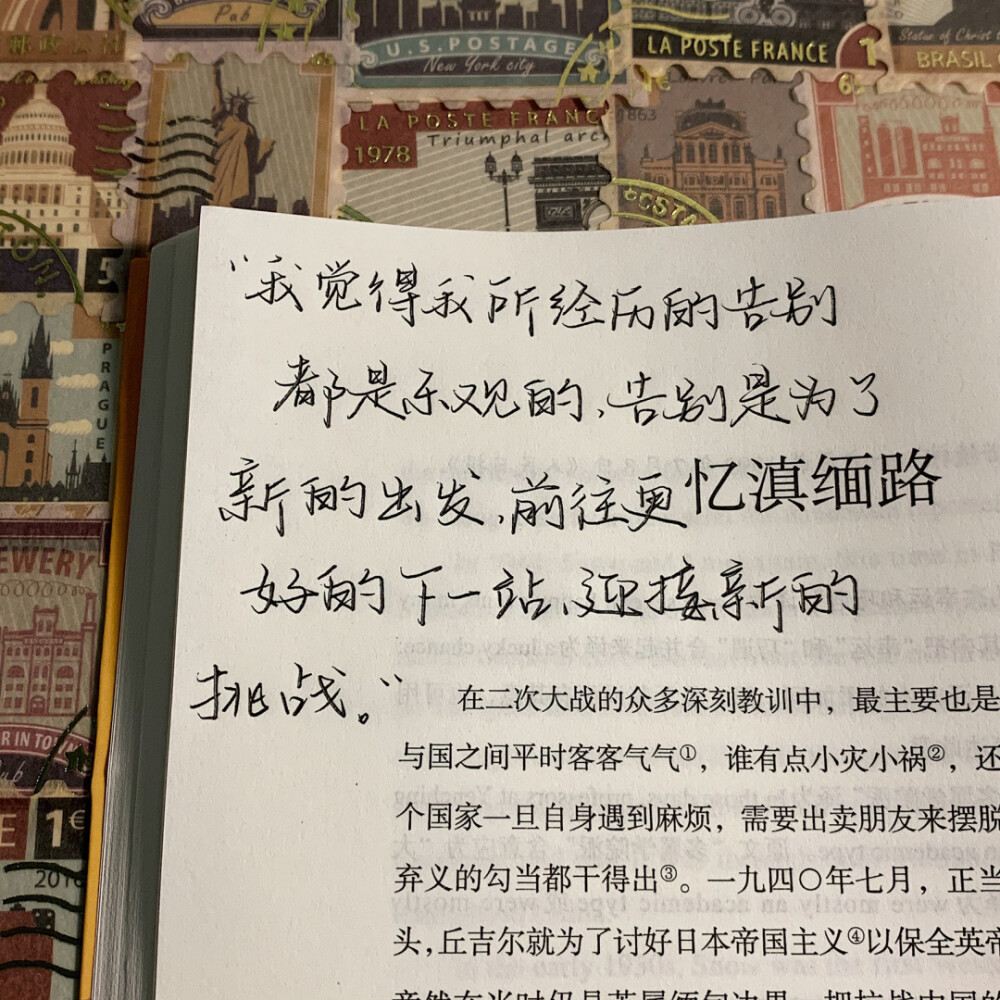 邮政公社
Pub
U.S.POSTAGE
New York city
LA POSTE FRANCE
1
Statue of Christ t
BRASIL
LA POSTE FRANC
Triumphal arch
1978
1863
65
POSTA
5
PRAGUE
EWERY
R IN TO
Pub
1€
2016
“我觉得我所经历的告别
都是乐观的、告别是为了
新的出发、前往更
好的下一站、迎接新的
挑战。”
忆滇缅路
在二次大战的众多深刻教训中，最主要也是
与国之间平时客客气气①，谁有点小灾小祸②，还
个国家一旦自身遇到麻烦，需要出卖朋友来摆脱
弃义的勾当都干得出③。一九四〇年七月，正当
头，丘吉尔就为了讨好日本帝国主义④以保全英帝